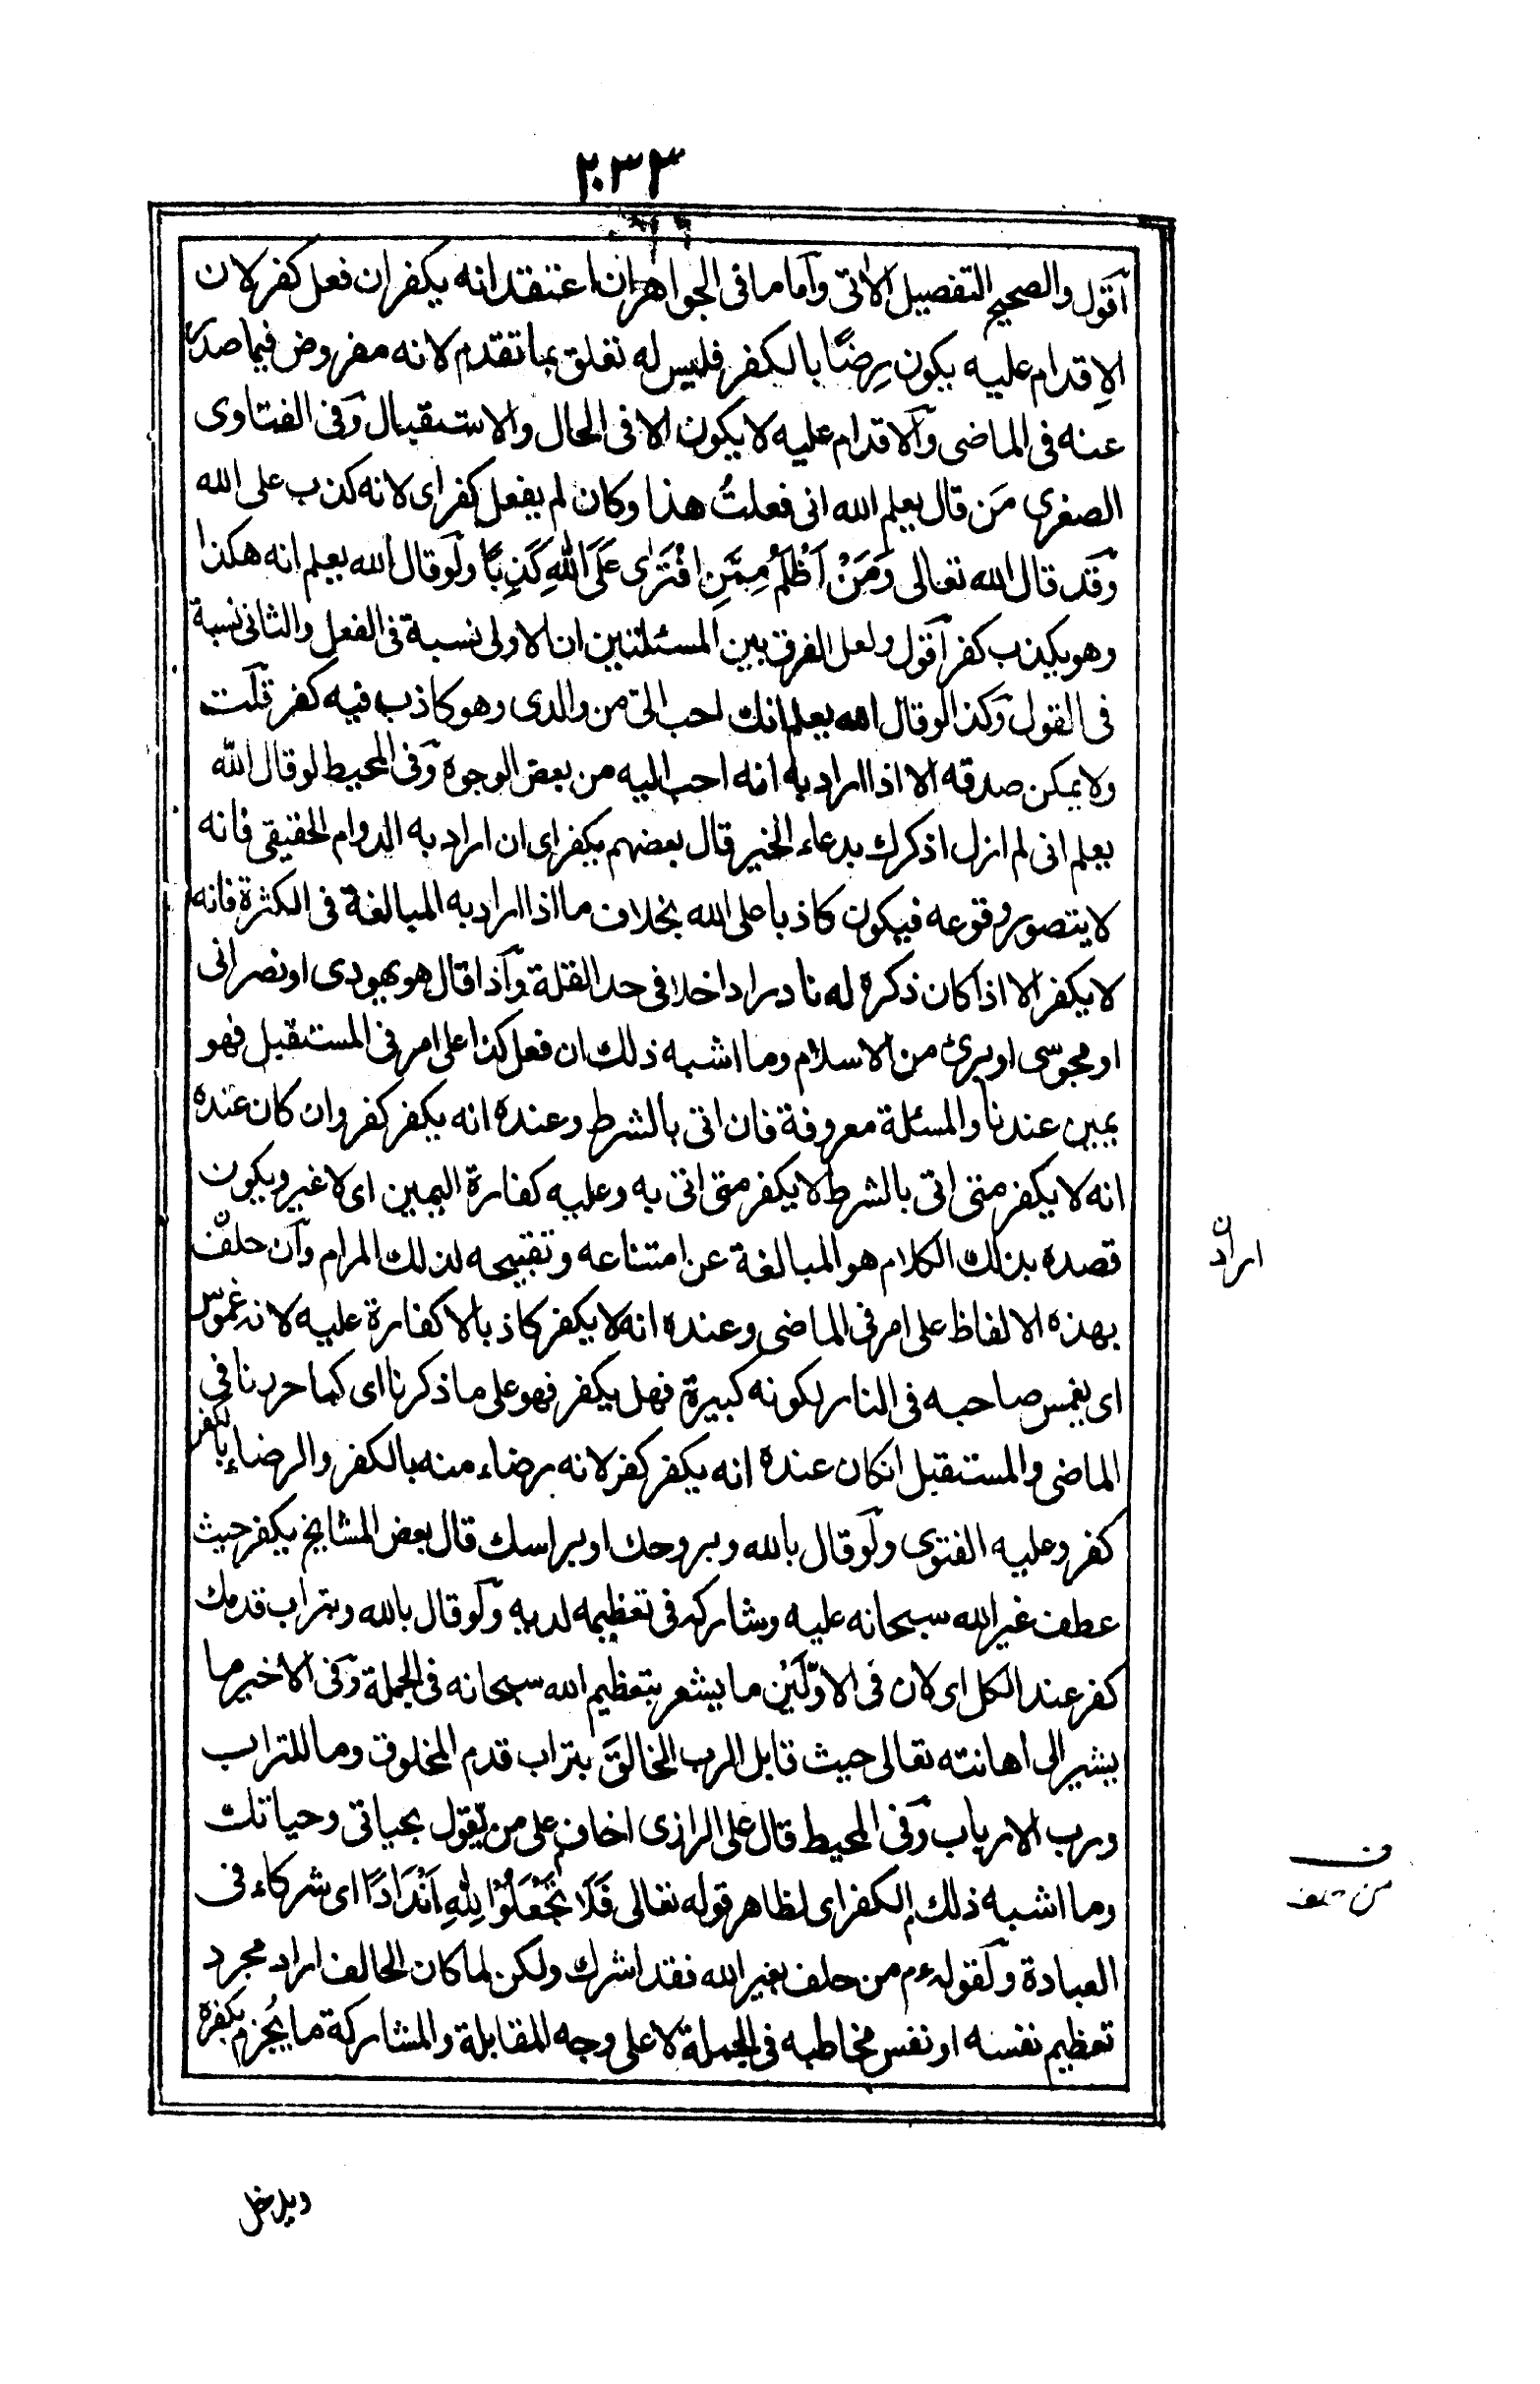 ٢٣٣
أقول والصحيح التفصيل الآتى وأما ما فى الجواهر ان اعتقد انه يكفر ان فعل كفر لان
الاِقدام عليه يكون رِضًا بالكفر فليس له تعلق بما تقدم لانه مفروض فيما صدر
عنه فى الماضى والاقدام عليه لا يكون الا فى الحال والاستقبال وفى الفتاوى
الصغرى مَن قال يعلم الله انى فعلتُ هذا وكان لم يفعل كفر اى لانه كذب على الله
وقد قال الله تعالى وَمَنْ اَظْلَمُ مِمَّنِ افْتَرٰى عَلَى اللهِ كَذِبًا ولو قال الله يعلم انه هكذا
وهو يكذب كفر أقول ولعل الفرق بين المسئلتين ان الاولى نسبة فى الفعل والثانى نسبة
فى القول وكذا لو قال الله يعلم انك احب الىّ من والدى وهو كاذب فيه كفر قلت
ولا يمكن صدقه الا اذا اراد به انه احب اليه من بعض الوجوه وفى المحيط لو قال الله
يعلم انى لم ازل اذكرك بدعاء الخير قال بعضهم يكفر اى ان اراد به الدوام الحقيقى فانه
لا يتصور وقوعه فيكون كاذبا على الله بخلاف ما اذا اراد به المبالغة فى الكثرة فانه
لا يكفر الا اذا كان ذكره له نادرا داخلا فى حد القلة وآذا قال هو يهودى او نصرانى
او مجوسى او برئ من الاسلام وما اشبه ذلك ان فعل كذا على امر فى المستقبل فهو
يمين عندنا والمسئلة معروفة فان اتى بالشرط وعنده انه يكفر كفر وان كان عنده
انه لا يكفر متى اتى بالشرط لا يكفر متى اتى به وعليه كفارة اليمين اى لا غير ويكون
قصده بذلك الكلام هو المبالغة عن امتناعه وتقبيحه لذلك المرام وآن حلف
بهذه الالفاظ على امر فى الماضى وعنده انه لا يكفر كاذبا لا كفارة عليه لانه غموس
اى يغمس صاحبه فى النار لكونه كبيرة فهل يكفر فهو على ما ذكرنا اى كما حررنا فى
الماضى والمستقبل انكان عنده انه يكفر كفر لانه رضاء منه بالكفر والرضاء بالكفر
كفر وعليه الفتوى ولو قال بالله وبروحك او براسك قال بعض المشايخ يكفر حيث
عطف غير الله سبحانه عليه وشاركه فى تعظيمه لديه ولو قال بالله وبتراب قدمك
كفر عند الكل اى لان فى الاوّلَيْن ما يشعر بتعظيم الله سبحانه فى الجملة وفى الاخير ما
يشير الى اهانته تعالى حيث قابل الرب الخالقَ بتراب قدم المخلوق وما للتراب
ورب الارباب وفى المحيط قال على الرازى اخاف على من يقول بحياتى وحياتك
وما اشبه ذلك الكفر اى لظاهر قوله تعالى فَلَا تَجْعَلُوْا لِلّٰهِ اَنْدَادًا اى شركاء فى
العبادة ولقوله عم من حلف بغير الله فقد اشرك ولكن لما كان الحالف اراد مجرد
تعظيم نفسه او نفس مخاطبه فى الجملة لا على وجه المقابلة والمشاركة ما يُجزم بكفره
ان
اراد
ف
من حلف
ويدخل